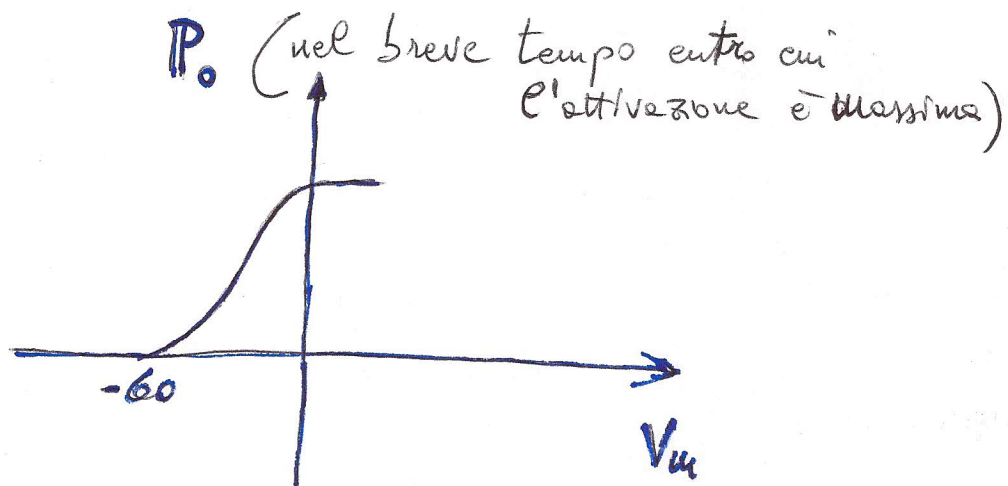 P₀ (nel breve tempo entro cui
l'attivazione è massima)
-60
Vm